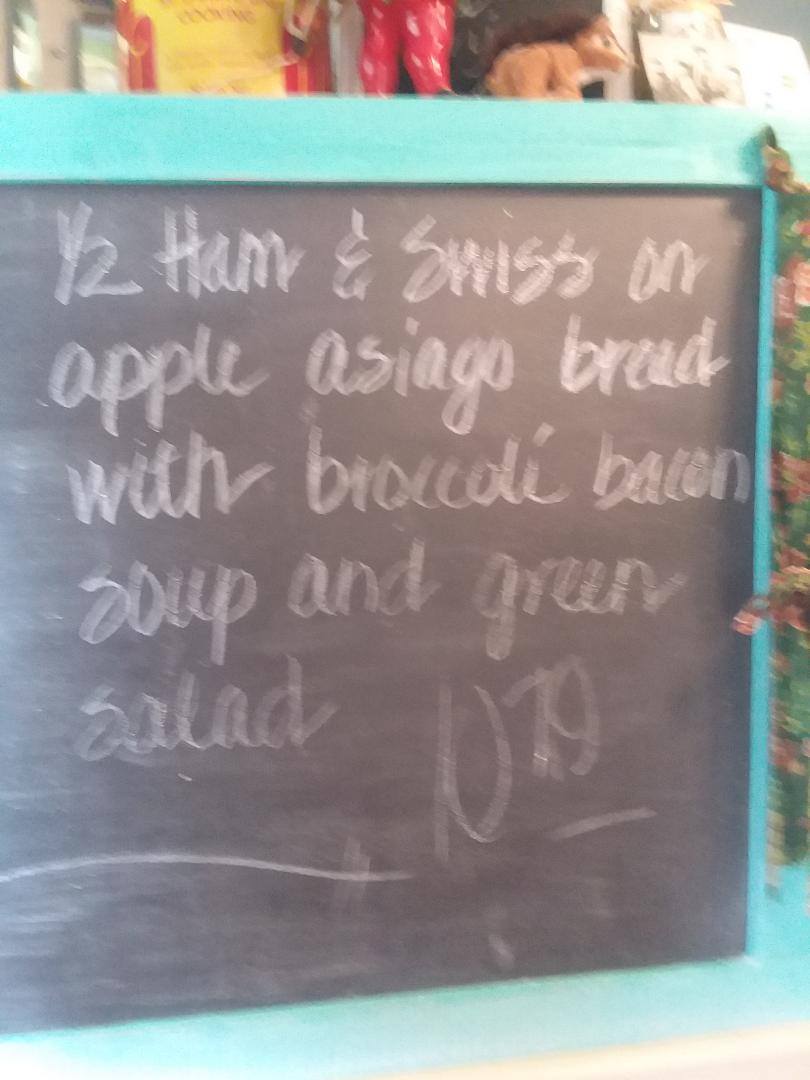 COOKING
1/2 Ham & Swiss on
apple asiago bread
with broccoli bacon
soup and green
salad 10 79